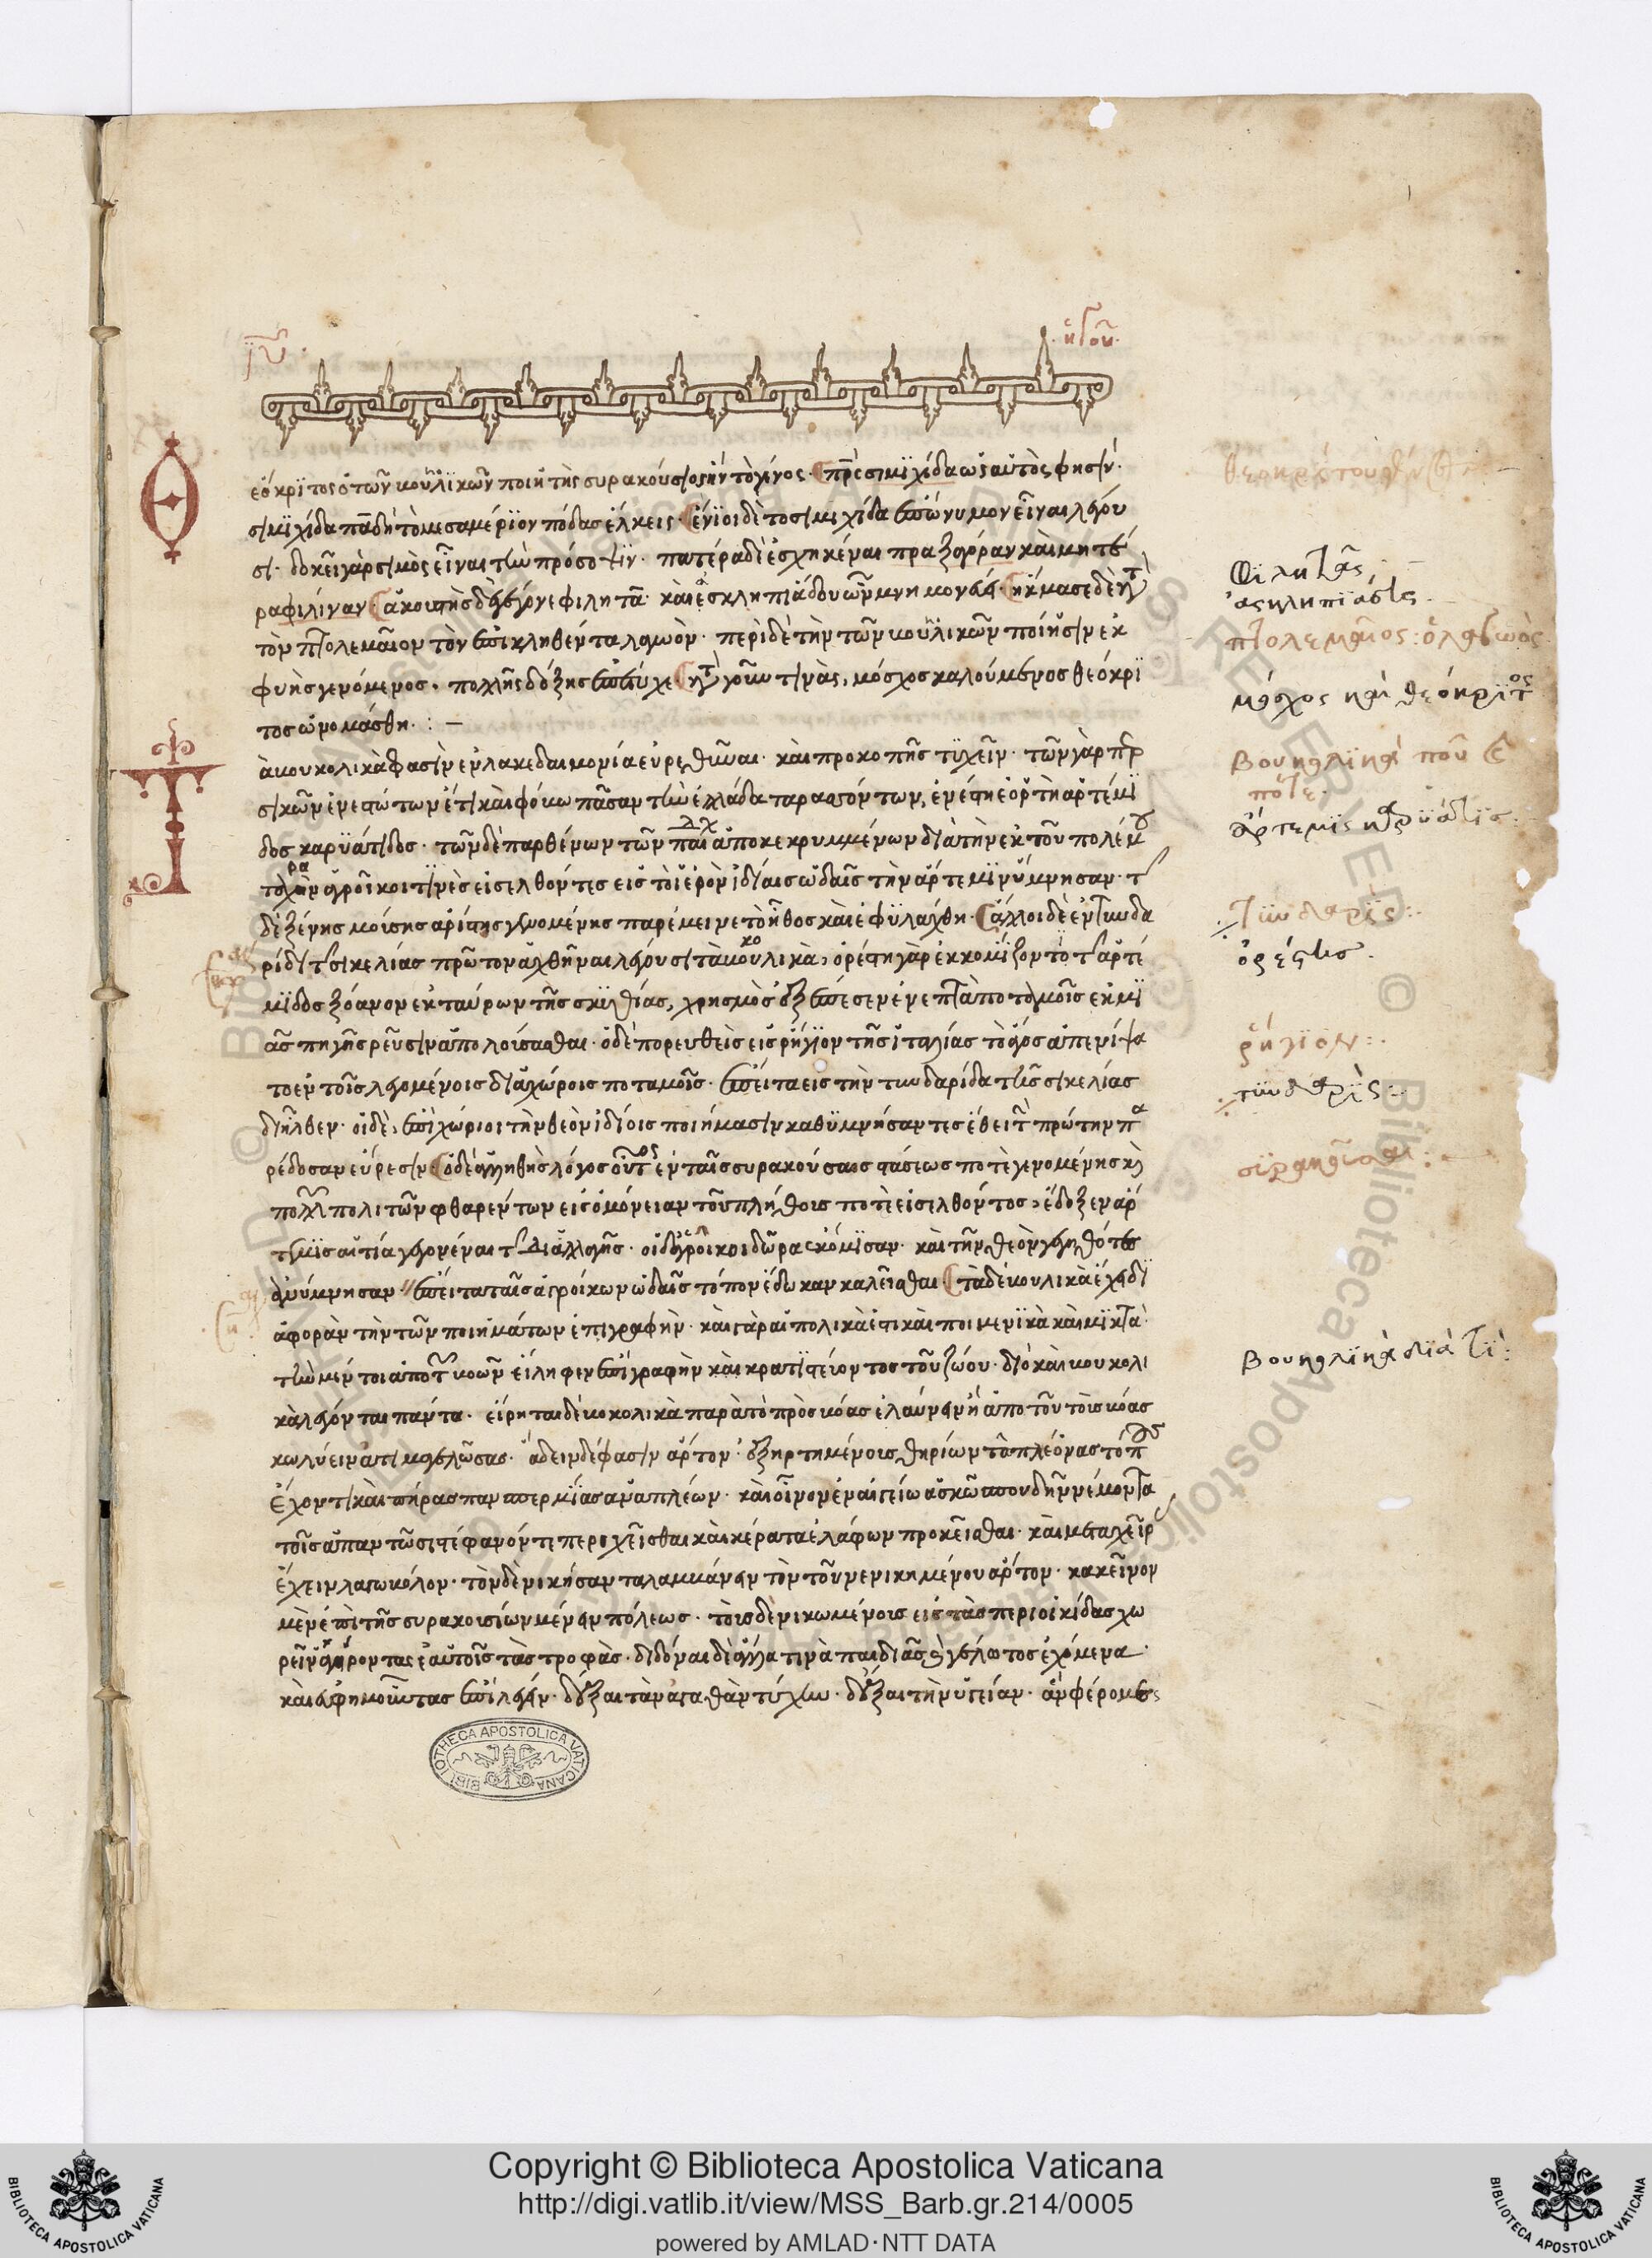 εόκρϊτος ὁ τῶν βουκολϊκῶν ποιητὴς συρακούσιος ἦν τὸ γένος· πρὸς σιμϊχίδα ὡς αὐτὸς φησίν·
σιμϊχίδα πᾶ δὴ τὸ μεσαμέρϊον πόδας ἕλκεις· ἔνϊοι δὲ τὸ σιμιχίδα ἐπώνυμον εἶναι λέγου
σι· δοκεῖ γὰρ σιμὸς εἶναι τὴν πρόσοψιν· πατέρα δὲ ἐσχηκέναι πραξαγόραν καὶ μητέ
ρα φιλίναν· ἀκουστὴς δὲ γέγονε φιλητᾶ καὶ ἀσκληπιάδου ὧν μνημονεύει· ἤκμασε δὲ κατὰ
τὸν πτολεμαῖον τὸν ἐπικληθέντα λαγωὸν· περὶ δὲ τὴν τῶν βουκολικῶν ποίησιν εὐ
φυὴς γενόμενος· πολλῆς δόξης ἐπέτυχε κατὰ γοῦν τινὰς, μόσχος καλούμενος θεόκρϊ
τος ὠνομάσθη· : —
ὰ βουκολικὰ φασὶν ἐν λακεδαιμονία εὑρεθῆναι· καὶ προκοπῆς τϋχεῖν· τῶν γὰρ περ
σικῶν ἐνεστώτων ἔτι καὶ φόβω πᾶσαν τὴν ἑλλάδα ταρασσόντων, ἐνέστη ἑορτὴ ἀρτέμϊ
δος καρϋάτιδος· τῶν δὲ παρθένων τῶν παι ἀποκεκρυμμένων διὰ τὴν ἐκ τοῦ πολέμου
ταραχὴν ἀγροῖκοι τϊνὲς εἰσελθόντες εἰς τὸ ἱερὸν ἰδίαις ὠδαῖς τὴν ἄρτεμϊν ὕμνησαν· τῆς
δὲ ξένης μούσης ἀρίστης γενομένης παρέμεινε τὸ ἦθος καὶ ἐφϋλάχθη· ἄλλοι δὲ ἐν τυνδα
ρίδι τῆς σικελίας πρῶτον ἀχθῆναι λέγουσι τὰ βουκολικὰ, ὀρέστη γὰρ ἐκκομϊζοντι τὸ τῆς ἀρτέ
μϊδος ξόανον ἐκ ταύρων τῆς σκϋθίας, χρησμὸς ἐξέπεσεν ἐν ἑπτὰ ποταμοῖς ἐκ μϊ
ᾶς πηγῆς ρέουσιν ἀπολούσασθαι· ὁ δὲ πορευθεὶς εἰς ρήγϊον τῆς ἰταλίας τὸ ἄγος ἀπενίψα
το ἐν τοῖς λεγομένοις διαχώροις ποταμοῖς· ἔπειτα εἰς τὴν τυνδαρίδα τῆς σικελίας
διῆλθεν· οἱ δὲ, ἐπιχώριοι τὴν θεὸν ἰδίοις ποιήμασιν καθϋμνήσαντες ἔθει τὴν πρώτην πα
ρέδοσαν εὕρεσιν ὁ δὲ ἀληθὴς λόγος οὗτος ἐν ταῖς συρακούσαις στάσεως ποτὲ γενομένης καὶ
πολλῶν πολιτῶν φθαρέντων εἰς ὁμόνοιαν τοῦ πλήθους ποτὲ εἰσελθόντος, ἔδοξεν ἄρ
τεμϊς αἰτία γεγονέναι τῆς διαλλαγῆς· οἱ δὲ ἀγροῖκοι δῶρα ἐκόμϊσαν· καὶ τὴν θεὸν γεγηθότες
ἀνύμνησαν ἔπειτα ταῖς ἀγροίκων ὠδαῖς τόπον ἔδωκαν καλεῖσθαι τὰ δὲ βουκολικὰ ἔχει δϊ
αφορὰν τὴν τῶν ποιημάτων ἐπιγραφὴν· καὶ γὰρ αἰπολικὰ ἐστι καὶ ποιμενϊκὰ καὶ μϊκτὰ
τὴν μέντοι ἀπὸ τῶν βοῶν εἴληφεν ἐπιγραφὴν καὶ κρατϊστεύοντος τοῦ ζώου· διὸ καὶ βουκολι
κὰ λέγονται πάντα· εἴρηται δὲ βουκολικὰ παρὰ τὸ πρὸς βόας ἐλαύνειν ἢ ἀπὸ τοῦ τοὺς βόας
κωλύειν
ἔχοντι καὶ πήρας πανσπερμΐας ἀνάπλεων· καὶ οἶνον ἐν αἰγείω ἀσκῶ σπονδὴν νέμοντα
τοῖς ἀπαντῶσι στέφανόν τι περιχεῖσθαι καὶ κέρατα ἐλάφων προκεῖσθαι· καὶ μετὰ χεῖρας
ἔχειν λαγωβόλον· τὸν δὲ νικήσαντα λαμβάνειν τὸν τοῦ νενικημένου ἄρτον· κακεῖνον
μὲν ἐπὶ τῆς συρακουσίων μένειν πόλεως· τοὺς δὲ νικωμένους εἰς τὰς περιοικίδας χω
ρεῖν ἀγείροντας ἑαυτοῖς τὰς τροφὰς· διδόναι δὲ ἄλλα τινὰ παιδιᾶς καὶ γέλωτος ἐχόμενα·
καὶ εὐφημοῦντας ἐπιλέγειν· δέξαι τὰν ἀγαθὰν τύχην· δέξαι τὴν ὑγείαν· ἂν φέρομες
Φϊλητᾶς
ἀσκληπϊάδης
πτολεμαῖος: ὁ λαγωὸς
μόσχος καὶ θεόκρϊτος
Βουκολϊκὰ ποῦ καὶ
πότε·
ἄρτεμϊς καρϋάτϊς:
Τϋνδαρϊς:
ὀρέστης·
ῥήγϊον:
τϋνδαρϊς:
Βουκολϊκὰ δϊὰ τϊ:
BIBLIOTHECA APOSTOLICA VATICANA
Copyright © Biblioteca Apostolica Vaticana
http://digi.vatlib.it/view/MSS_Barb.gr.214/0005
powered by AMLAD·NTT DATA